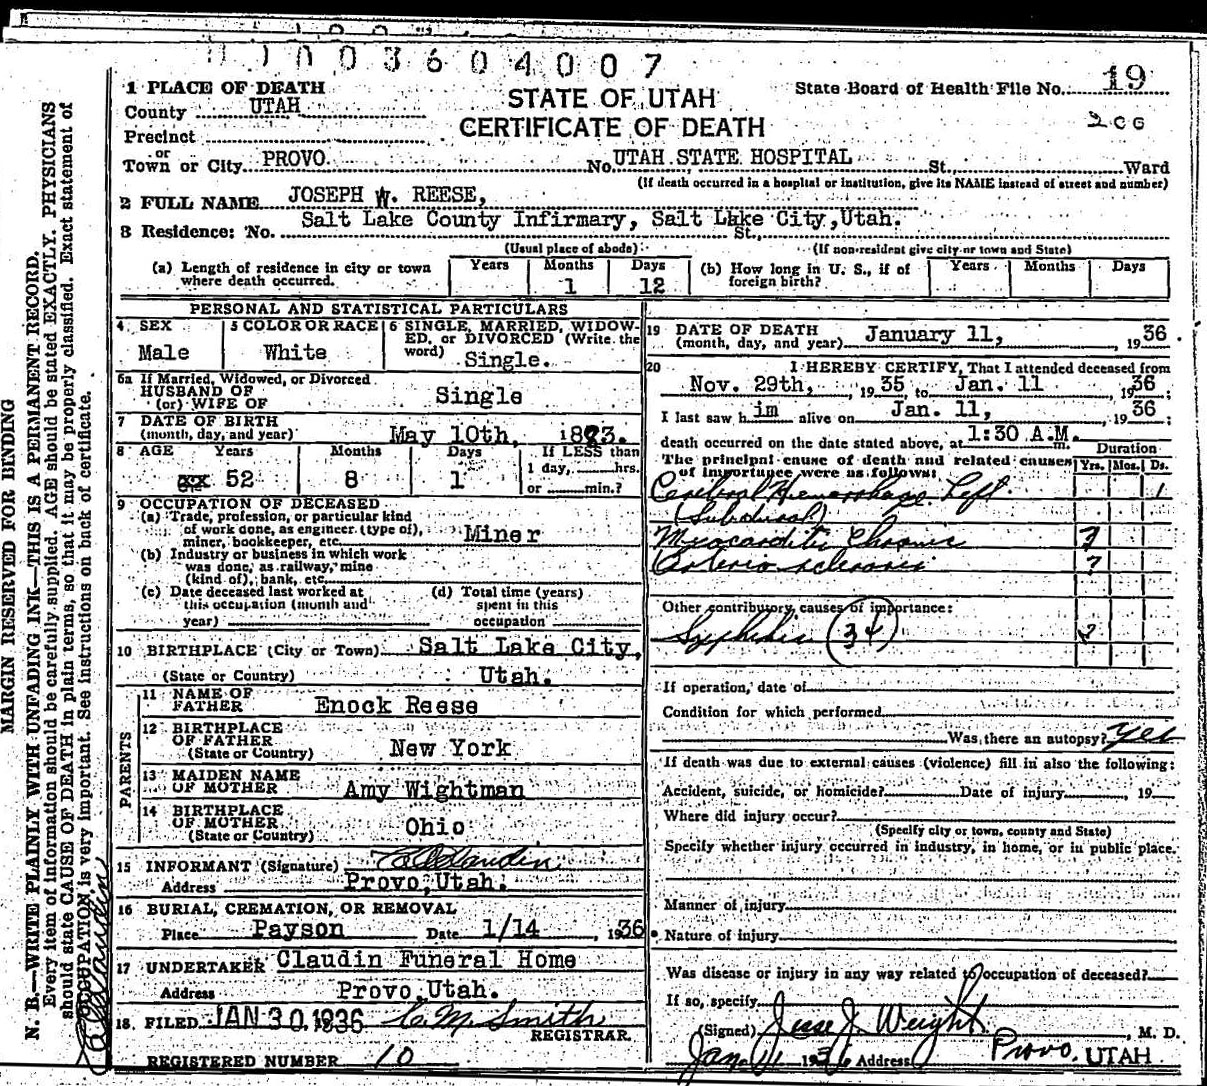 1003604007
1 PLACE OF DEATH
County UTAH
Precinct
or
Town or City PROVO
STATE OF UTAH
CERTIFICATE OF DEATH
State Board of Health File No. 19
200
No. UTAH STATE HOSPITAL St., Ward
(If death occurred in a hospital or institution, give its NAME instead of street and number)
2 FULL NAME JOSEPH W. REESE,
Salt Lake County Infirmary, Salt Lake City, Utah.
3 Residence: No. St.,
(Usual place of abode)
(If non-resident give city or town and State)
(a) Length of residence in city or town where death occurred.
Years Months Days
1 12
(b) How long in U. S., if of foreign birth?
Years Months Days
PERSONAL AND STATISTICAL PARTICULARS
4 SEX
Male
5 COLOR OR RACE
White
6 SINGLE, MARRIED, WIDOW-
ED, or DIVORCED (Write the
word) Single.
6a If Married, Widowed, or Divorced
HUSBAND OF
(or) WIFE OF
Single
7 DATE OF BIRTH
(month, day, and year) May 10th, 1883.
8 AGE Years Months Days If LESS than
1 day, hrs.
or min.?
52 8 1
9 OCCUPATION OF DECEASED
(a) Trade, profession, or particular kind
of work done, as engineer (type of),
miner, bookkeeper, etc. Miner
(b) Industry or business in which work
was done, as railway, mine
(kind of), bank, etc.
(c) Date deceased last worked at
this occupation (month and
year)
(d) Total time (years)
spent in this
occupation
10 BIRTHPLACE (City or Town) Salt Lake City,
(State or Country) Utah.
PARENTS
11 NAME OF
FATHER Enock Reese
12 BIRTHPLACE
OF FATHER
(State or Country) New York
13 MAIDEN NAME
OF MOTHER Amy Wightman
14 BIRTHPLACE
OF MOTHER
(State or Country) Ohio
15 INFORMANT (Signature)
Address Provo, Utah.
16 BURIAL, CREMATION, OR REMOVAL
Place Payson Date 1/14, 1936
17 UNDERTAKER Claudin Funeral Home
Address Provo, Utah.
18. FILED JAN 30 1936 C. M. Smith
REGISTRAR.
REGISTERED NUMBER 10
19 DATE OF DEATH
(month, day, and year) January 11, , 1936.
20 I HEREBY CERTIFY, That I attended deceased from
Nov. 29th, , 1935, to Jan. 11 , 1936;
I last saw him alive on Jan. 11, , 1936;
death occurred on the date stated above, at 1:30 A.M. m.
The principal cause of death and related causes
of importance were as follows:
Duration
Yrs. Mos. Ds.
Cerebral Hemorrhage Left. 1
(Subdural)
Myocarditis Chronic ?
Arterio sclerosis ?
Other contributory causes of importance:
Syphilis (3+) 2
If operation, date of
Condition for which performed
Was there an autopsy? Yes
If death was due to external causes (violence) fill in also the following:
Accident, suicide, or homicide? Date of injury , 19
Where did injury occur?
(Specify city or town, county and State)
Specify whether injury occurred in industry, in home, or in public place.
Manner of injury
Nature of injury
Was disease or injury in any way related to occupation of deceased?
If so, specify
(Signed) Jesse J. Weight , M. D.
Jan. 11 1936 Address Provo, UTAH
MARGIN RESERVED FOR BINDING
N. B.—WRITE PLAINLY WITH UNFADING INK—THIS IS A PERMANENT RECORD.
Every item of information should be carefully supplied. AGE should be stated EXACTLY. PHYSICIANS
should state CAUSE OF DEATH in plain terms, so that it may be properly classified. Exact statement of
OCCUPATION is very important. See instructions on back of certificate.